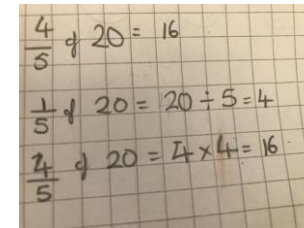 4/5 of 20 = 16
1/5 of 20 = 20 ÷ 5 = 4
4/5 of 20 = 4 × 4 = 16